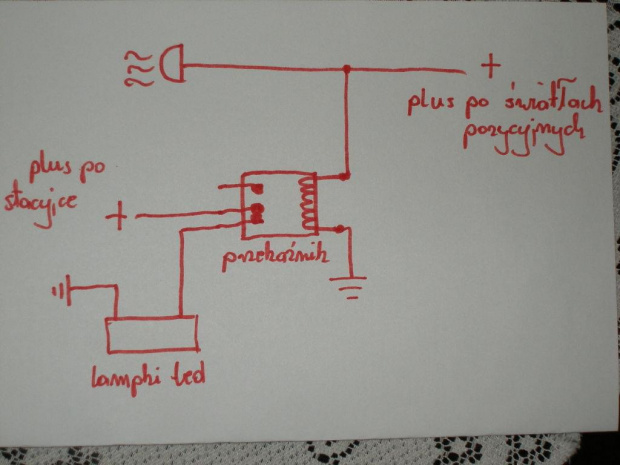 +
plus po światłach
pozycyjnych
plus po
stacyjce
+
przekaźnik
lampki led